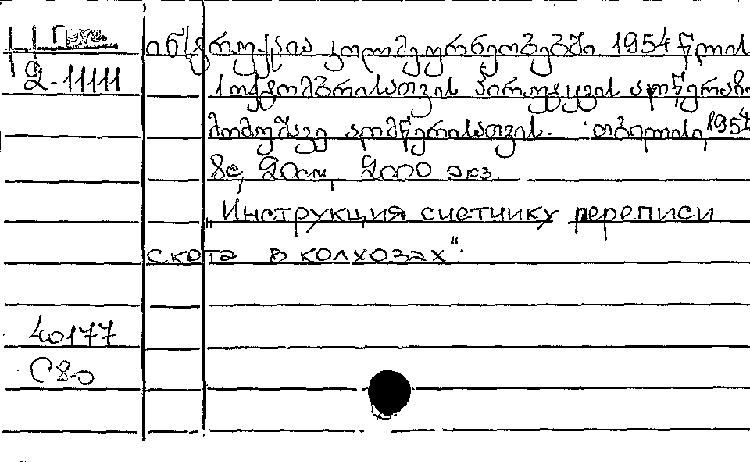 2-11111
ინსტრუქცია კოლმეურნეობებში 1954 წლის
1 ოქტომბრისათვის პირუტყვის აღწერაზე
მომუშავე აღმწერისათვის. თბილისი, 1954
8გ, 20სმ, 2000 ეგზ
„Инструкция счетчику переписи
скота в колхозах“.
40177